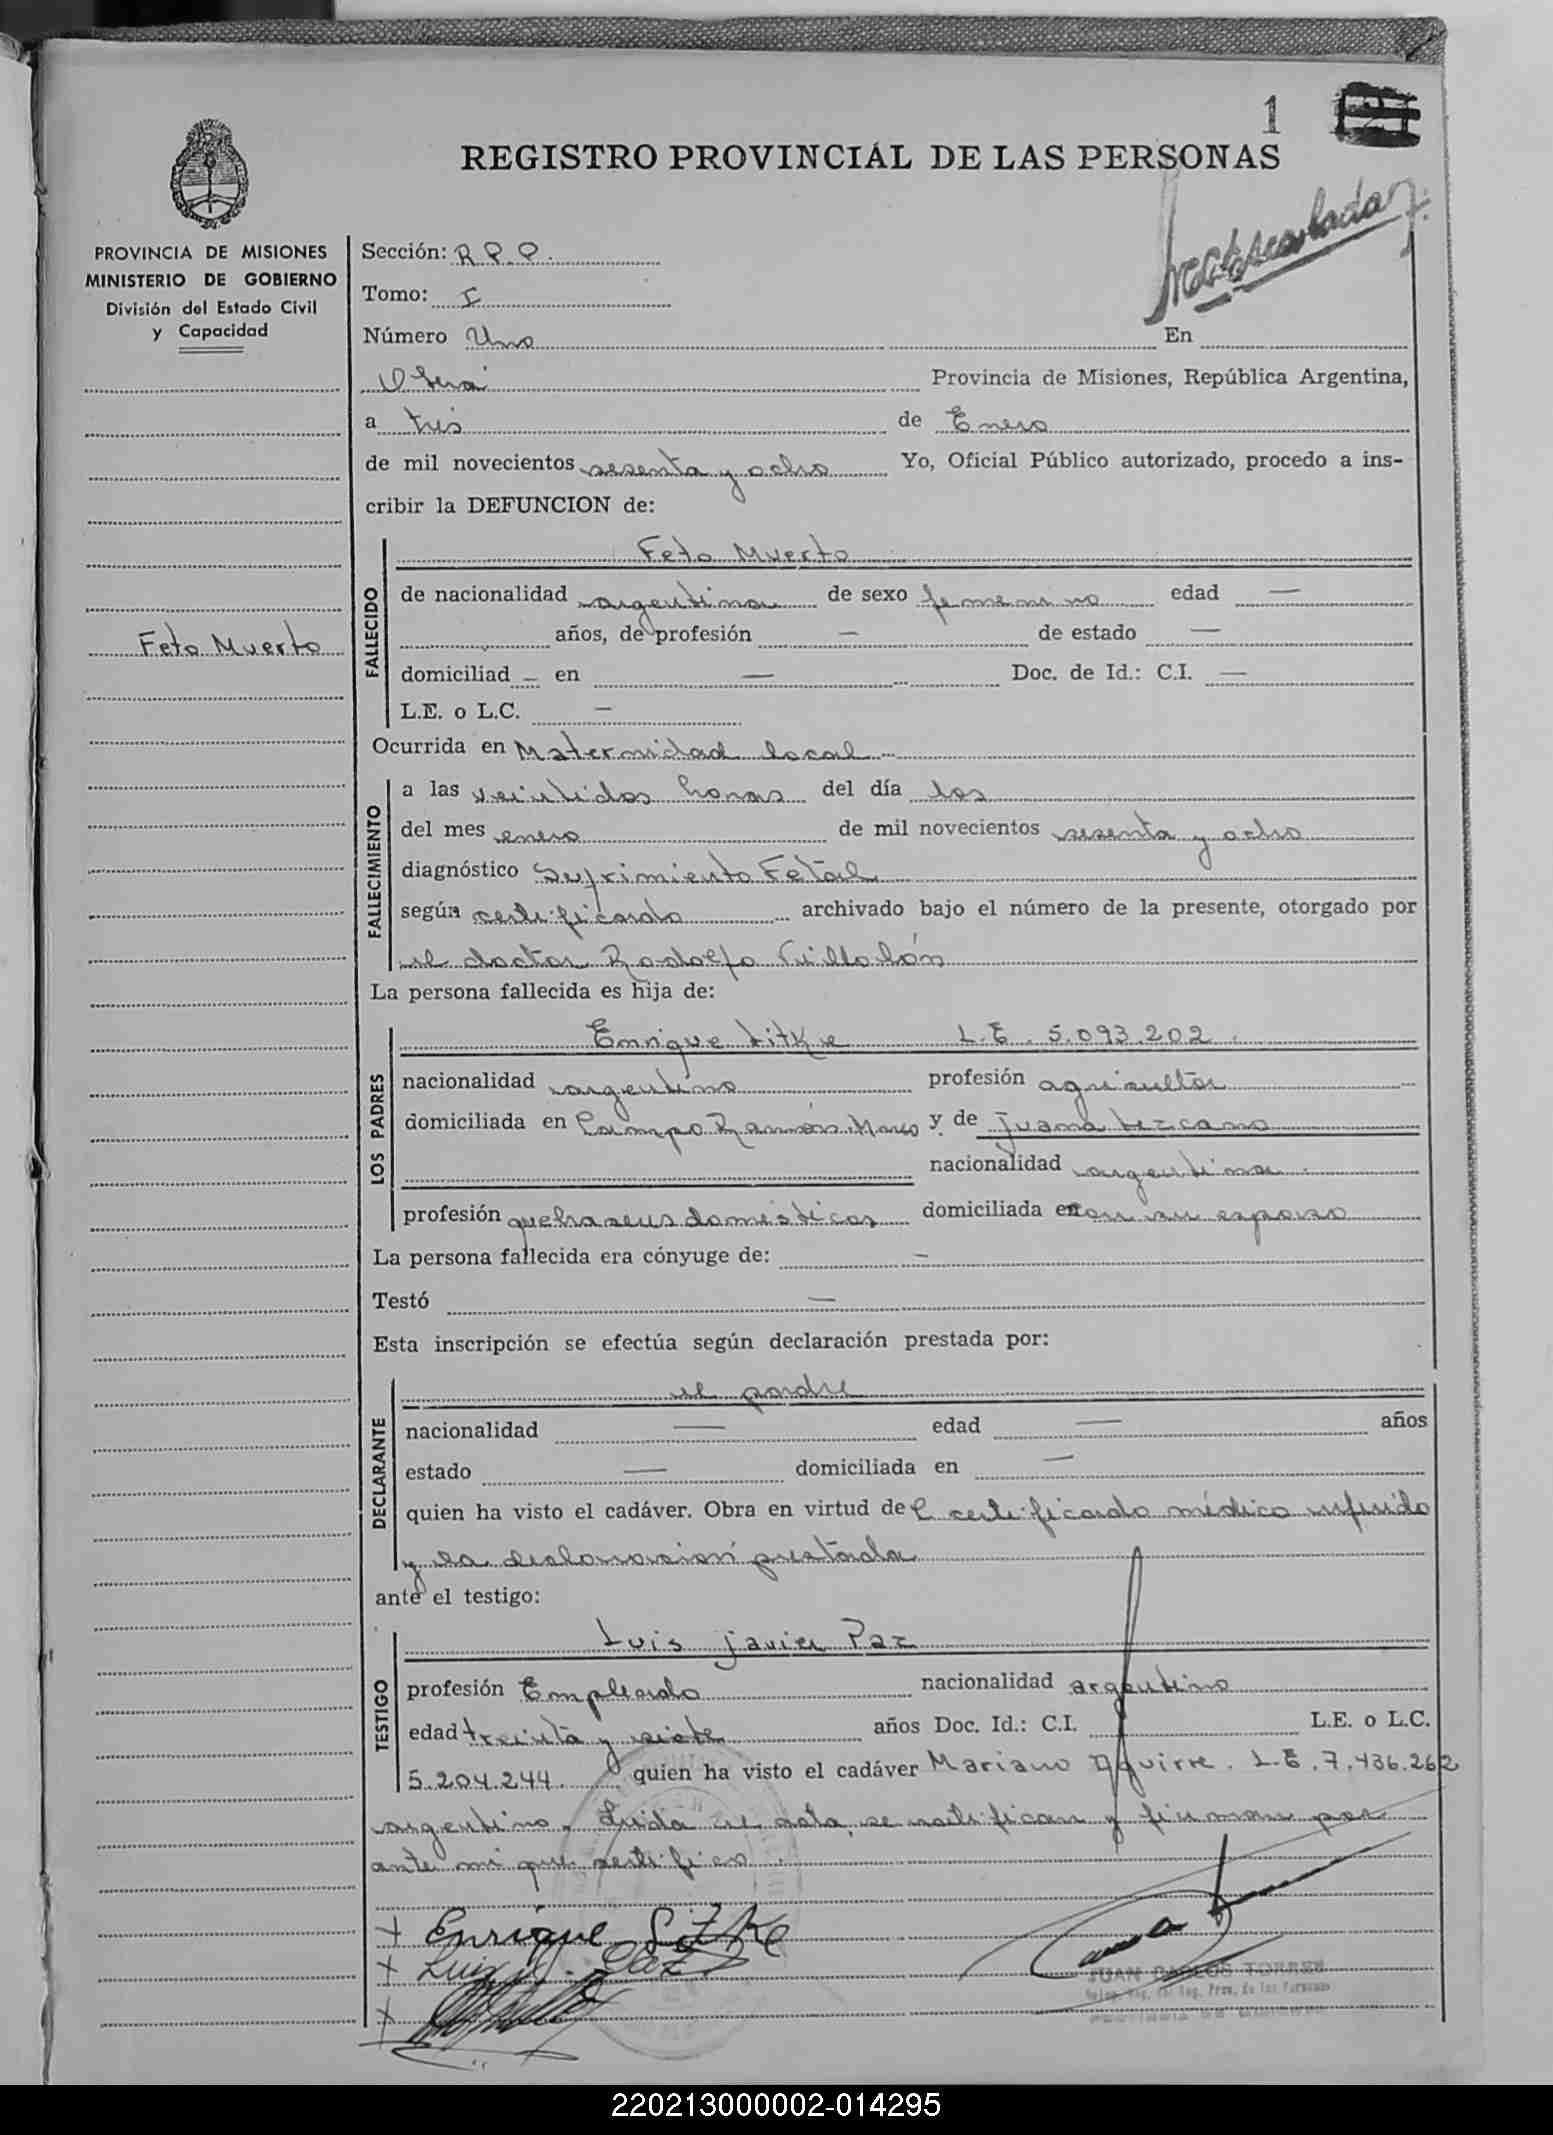 1
REGISTRO PROVINCIAL DE LAS PERSONAS
PROVINCIA DE MISIONES
MINISTERIO DE GOBIERNO
División del Estado Civil
y Capacidad
Feto Muerto
Sección: R.P.P.
Tomo: I
Número Uno En
Oberá Provincia de Misiones, República Argentina,
a tres de Enero
de mil novecientos sesenta y ocho Yo, Oficial Público autorizado, procedo a ins-
cribir la DEFUNCION de:
FALLECIDO
Feto Muerto
de nacionalidad argentina de sexo femenino edad —
años, de profesión — de estado —
domiciliad — en — Doc. de Id.: C.I. —
L.E. o L.C. —
Ocurrida en Maternidad local
FALLECIMIENTO
a las veintidos horas del día dos
del mes enero de mil novecientos sesenta y ocho
diagnóstico Sufrimiento Fetal
según certificado archivado bajo el número de la presente, otorgado por
el doctor Rodolfo
La persona fallecida es hija de:
LOS PADRES
Enrique Litke L.E. 5.093.202.
nacionalidad argentino profesión agricultor
domiciliada en Campo Ramón y de Juana Lezcano
nacionalidad argentina
profesión quehaseres domésticos domiciliada en con su esposo
La persona fallecida era cónyuge de: —
Testó —
Esta inscripción se efectúa según declaración prestada por:
DECLARANTE
el padre
nacionalidad — edad — años
estado — domiciliada en —
quien ha visto el cadáver. Obra en virtud del certificado médico referido
y la declaración prestada
ante el testigo:
TESTIGO
Luis Javier Paz
profesión Empleado nacionalidad argentino
edad treinta y siete años Doc. Id.: C.I. L.E. o L.C.
5.204.244. quien ha visto el cadáver Mariano Aguirre. L.E. 7.436.262
argentino. Leida el acta, se ratifican y firman por
ante mi que certifico.
+ Enrique Litke
+ Luis J. Paz
+
JUAN CARLOS TORRES
220213000002-014295